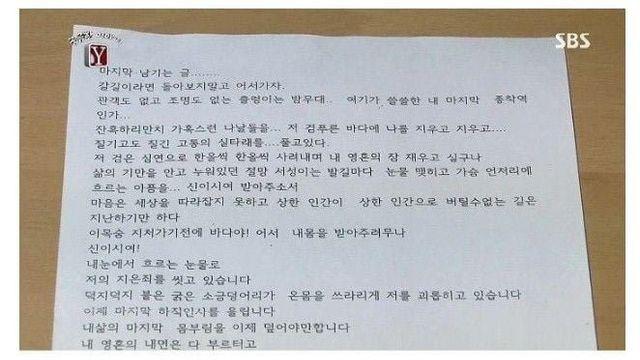 SBS
Y
마지막 남기는 글........
갈길이라면 돌아보지말고 어서가자.
관객도 없고 조명도 없는 을렁이는 밤무대.. 여기가 쓸쓸한 내 마지막 종착역
인가...
잔혹하리만치 가혹스런 나날들을... 저 검푸른 바다에 나를 지우고 지우고....
질기고도 질긴 고통의 실타래를....풀고있다.
저 검은 심연으로 한올씩 한올씩 사려내며 내 영혼의 잠 재우고 싶구나
삶의 기만을 안고 누워있던 절망 서성이는 발길마다 눈물 맺히고 가슴 언저리에
흐르는 아픔을... 신이시여 받아주소서
마음은 세상을 따라잡지 못하고 상한 인간이 상한 인간으로 버틸수없는 길은
지난하기만 하다
이목숨 지쳐가기전에 바다야! 어서 내몸을 받아주려무나
신이시여!
내눈에서 흐르는 눈물로
저의 지은죄를 씻고 있습니다
덕지덕지 붙은 굵은 소금덩어리가 온몸을 쓰라리게 저를 괴롭히고 있습니다
이제 마지막 하직인사를 올립니다
내삶의 마지막 몸부림을 이제 덜어야만합니다
내 영혼의 내면은 다 부르터고